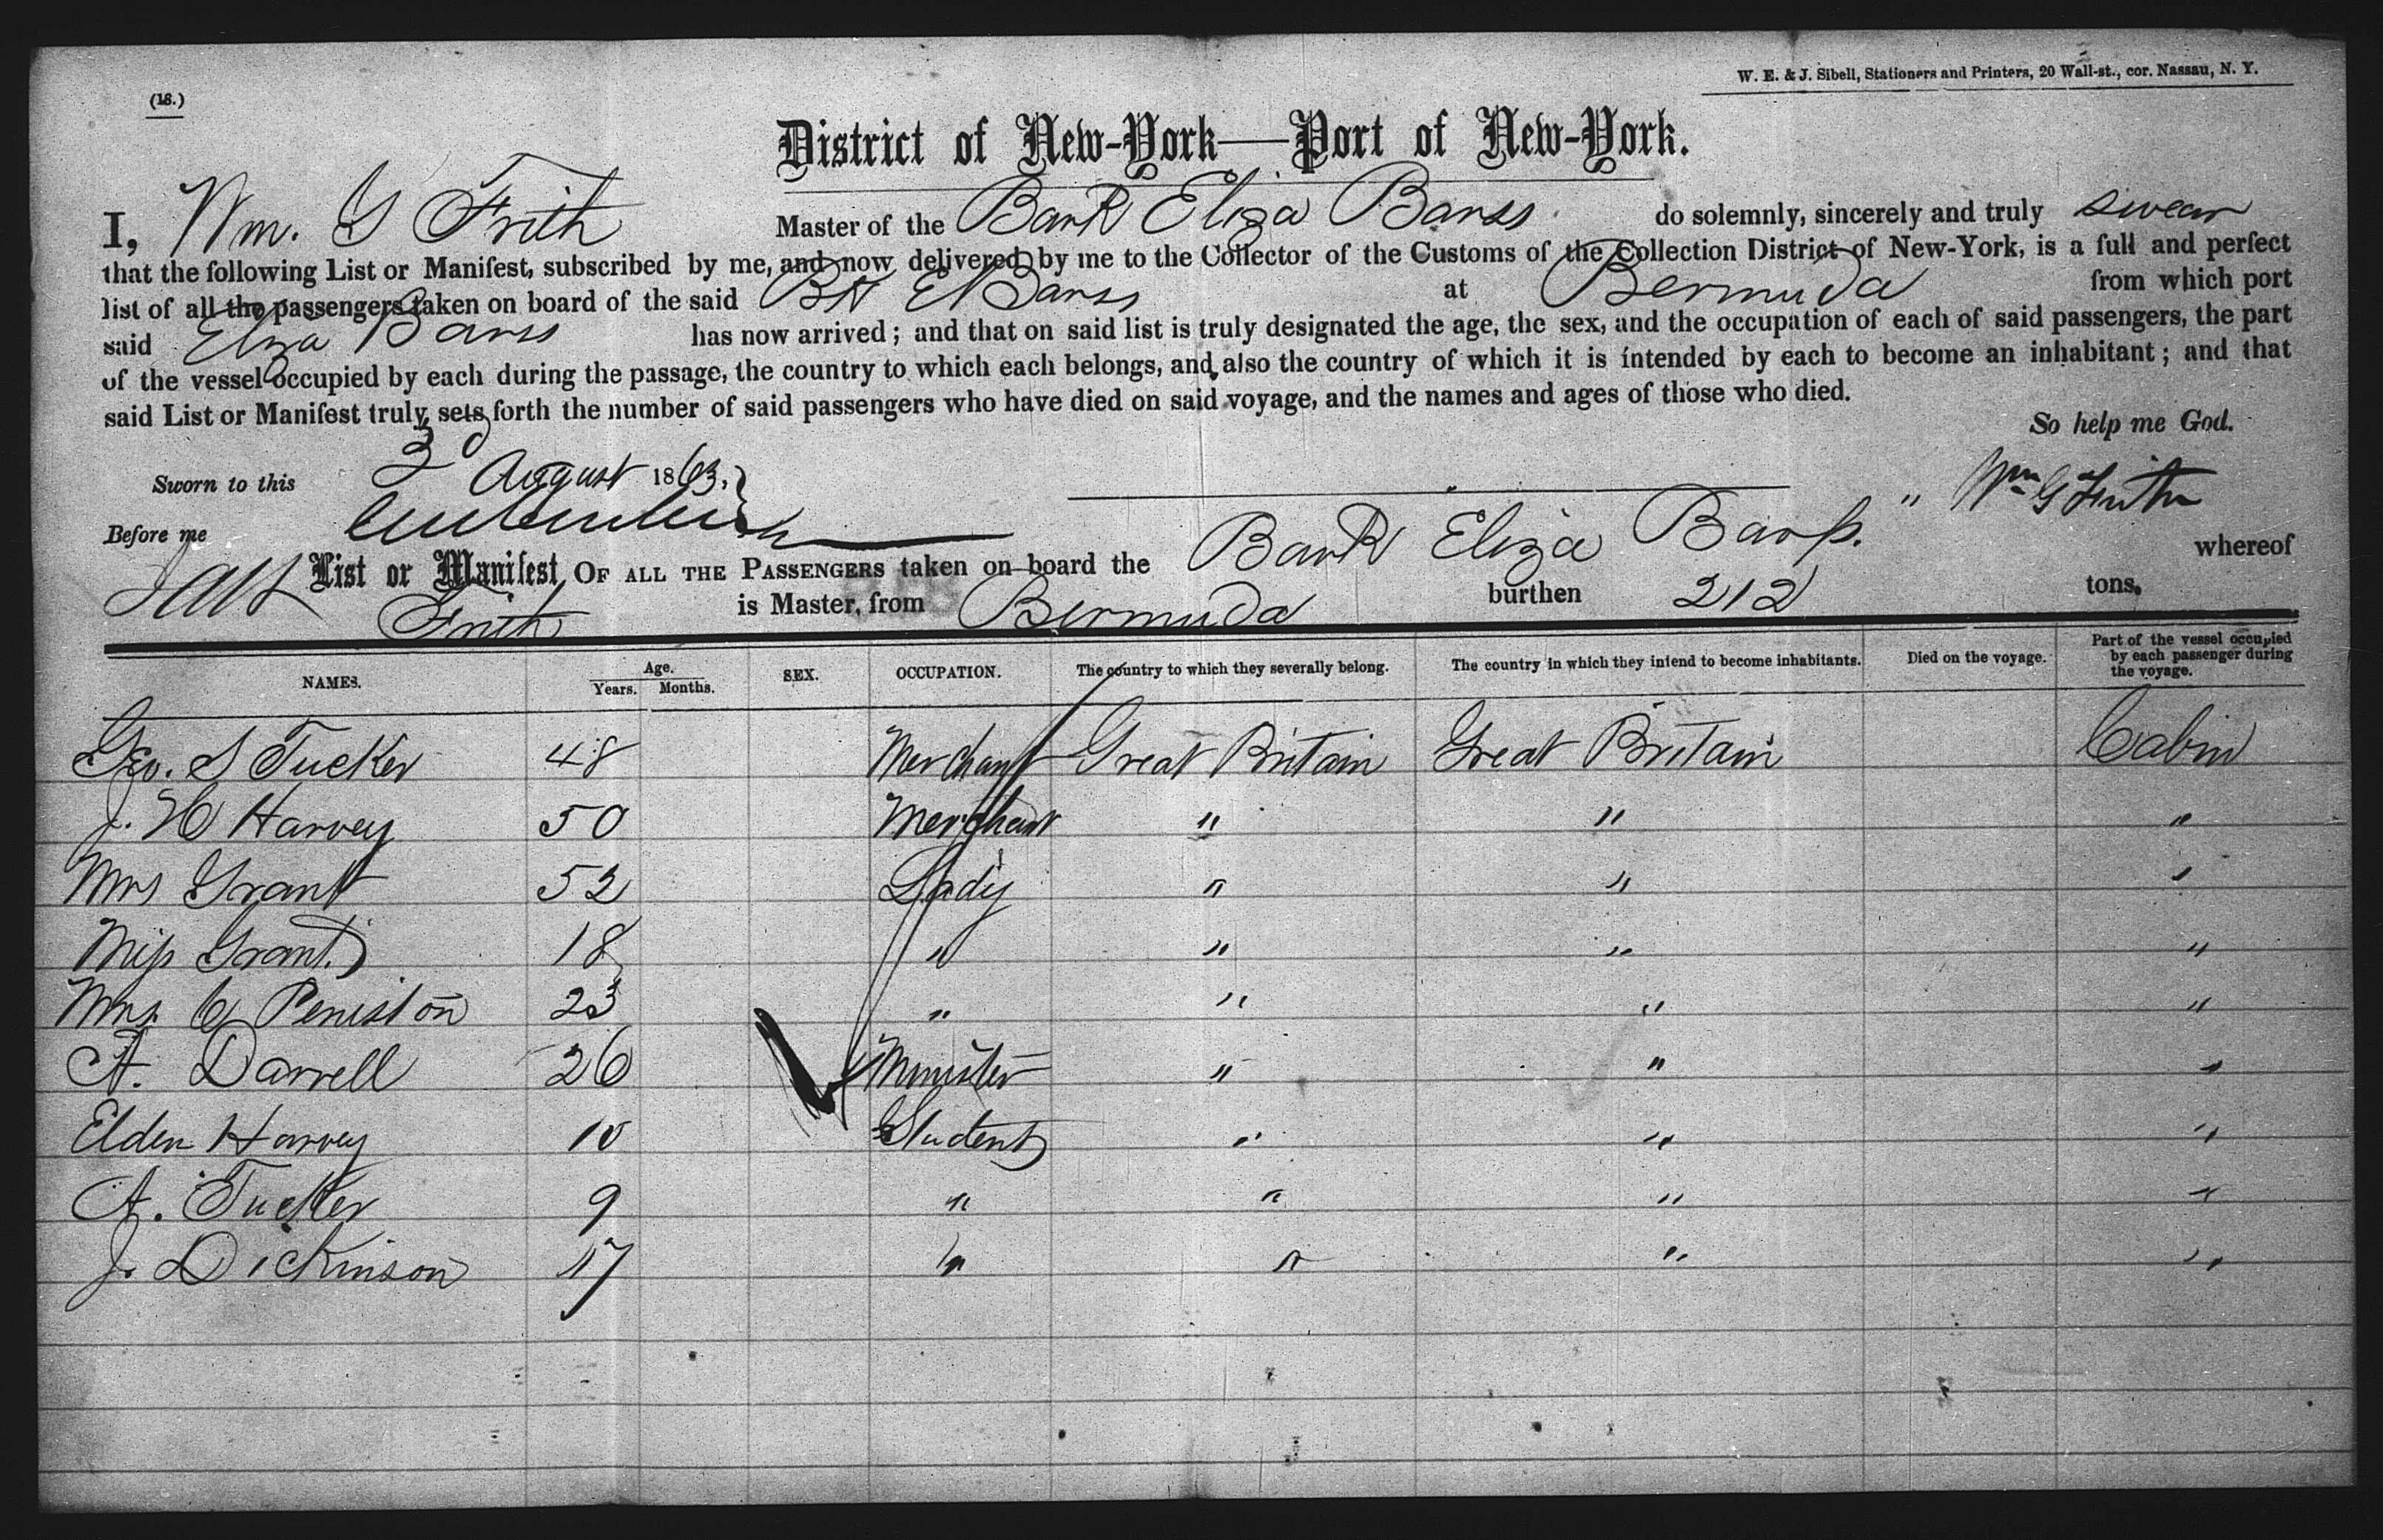 (18.)
W. E. & J. Sibell, Stationers and Printers, 20 Wall-st., cor. Nassau, N. Y.
District of New-York—Port of New-York.
I, Wm. G Frith Master of the Bark Eliza Barss do solemnly, sincerely and truly swear
that the following List or Manifest, subscribed by me, and now delivered by me to the Collector of the Customs of the Collection District of New-York, is a full and perfect
list of all the passengers taken on board of the said Bk E Barss at Bermuda from which port
said Eliza Barss has now arrived; and that on said list is truly designated the age, the sex, and the occupation of each of said passengers, the part
of the vessel occupied by each during the passage, the country to which each belongs, and also the country of which it is intended by each to become an inhabitant; and that
said List or Manifest truly sets forth the number of said passengers who have died on said voyage, and the names and ages of those who died.
So help me God.
Sworn to this 3 August 1863. Wm G Frith
Before me
List or Manifest OF ALL THE PASSENGERS taken on board the Bark Eliza Barss. " whereof
Frith is Master, from Bermuda burthen 212 tons.
NAMES. Age. Years. Months. SEX. OCCUPATION. The country to which they severally belong. The country in which they intend to become inhabitants. Died on the voyage. Part of the vessel occupied by each passenger during the voyage.
Geo. S Tucker 48 Merchant Great Britain Great Britain Cabin
J. H Harvey 50 Merchant " " "
Mrs Grant 52 Lady " " "
Miss Grant 18 " " " "
Mrs C Peniston 23 " " " "
A. Darrell 26 Minister " " "
Elden Harvey 10 Student " " "
A. Tucker 9 " " " "
J. Dickinson 17 " " " "